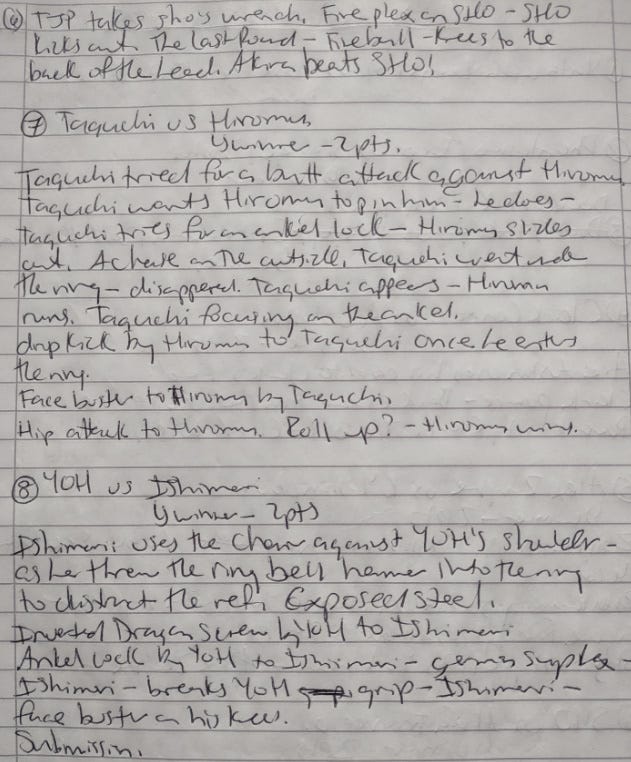 ⑥ TJP takes sho's wrench. Fireplex on SHO - SHO
kicks out. The last round - Fireball - knees to the
back of the head. Akira beats SHO!
⑦ Taguchi vs Hiromu
Winner - 2pts.
Taguchi tried for a butt attack against Hiromu
Taguchi wants Hiromu to pin him - he does -
Taguchi tries for an ankel lock - Hiromu slides
out. A chase on the outside. Taguchi went unde
the ring - disappered. Taguchi appers - Hiromu
runs. Taguchi focusing on the ankel.
dropkick by Hiromu to Taguchi once he enters
the ring.
Face buster to Hiromu by Taguchi.
Hip attack to Hiromu. Roll up? - Hiromu wins.
⑧ YOH vs Ishimori
winner - 2pts
Ishimori uses the chair against YOH's shulder -
as he threw the ring bell hamer into the ring
to distract the ref. Exposed steel.
Inverted Dragon Screw by YOH to Ishimori
Ankel lock by YOH to Ishimori - german suplex -
Ishimori - breaks YOH grip - Ishimori -
face buster on his knees.
Submission.